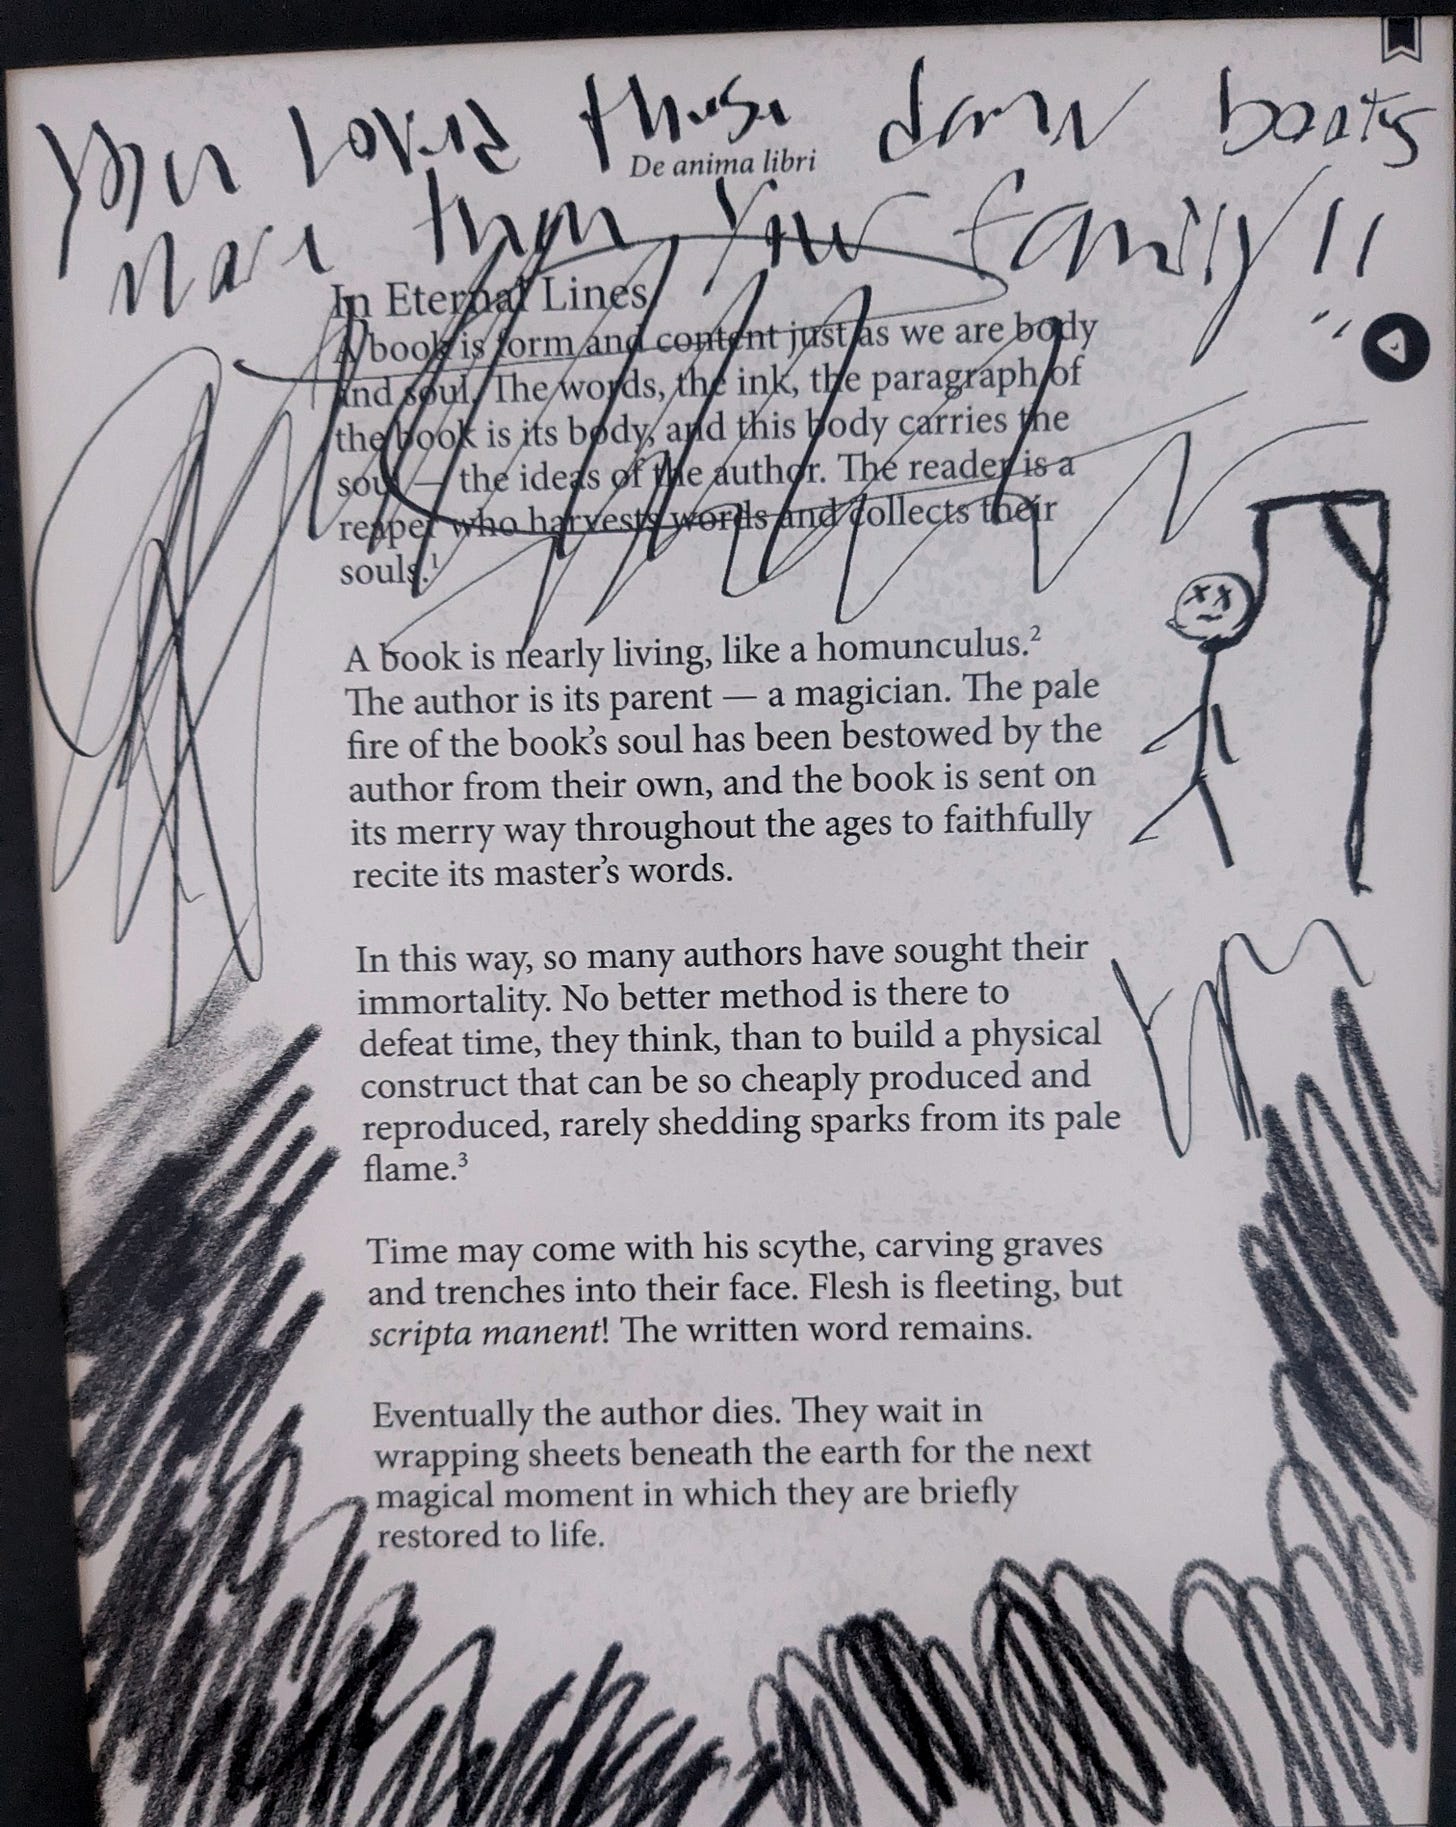 You loved these damn books
De anima libri
more than your family!!
In Eternal Lines
A book is form and content just as we are body
and soul. The words, the ink, the paragraph of
the book is its body, and this body carries the
soul — the ideas of the author. The reader is a
reaper who harvests words and collects their
souls.¹
A book is nearly living, like a homunculus.²
The author is its parent — a magician. The pale
fire of the book’s soul has been bestowed by the
author from their own, and the book is sent on
its merry way throughout the ages to faithfully
recite its master’s words.
In this way, so many authors have sought their
immortality. No better method is there to
defeat time, they think, than to build a physical
construct that can be so cheaply produced and
reproduced, rarely shedding sparks from its pale
flame.³
Time may come with his scythe, carving graves
and trenches into their face. Flesh is fleeting, but
scripta manent! The written word remains.
Eventually the author dies. They wait in
wrapping sheets beneath the earth for the next
magical moment in which they are briefly
restored to life.